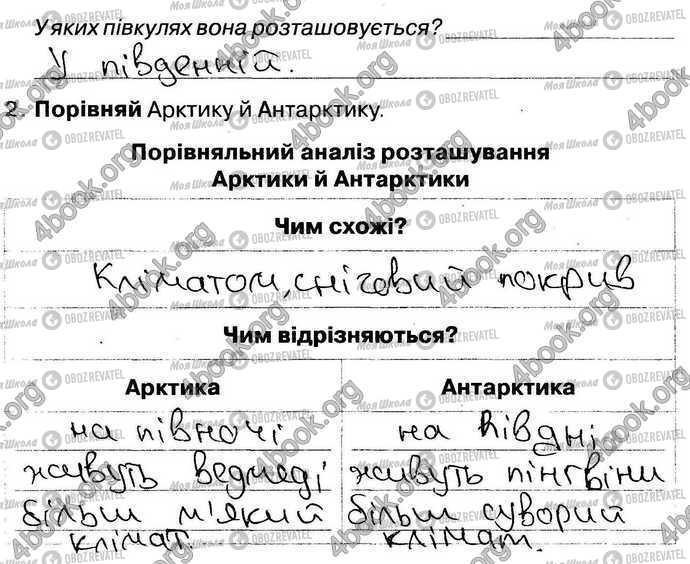 У яких півкулях вона розташовується?
У південній.
2. Порівняй Арктику й Антарктику.
Порівняльний аналіз розташування
Арктики й Антарктики
Чим схожі?
Кліматом, сніговий покрив
Чим відрізняються?
Арктика Антарктика
на півночі на півдні
живуть ведмеді живуть пінгвіни
більш м'який більш суворий
клімат клімат.